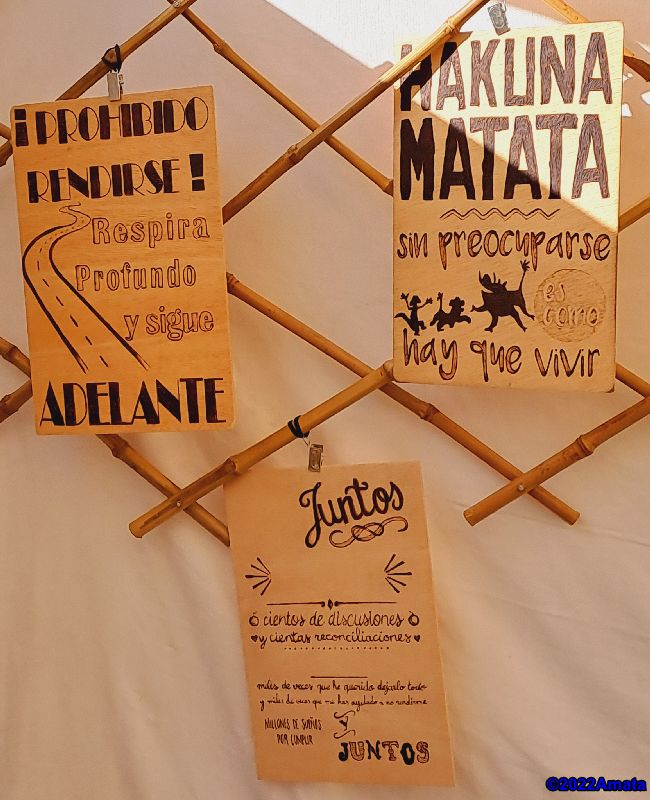 ¡PROHIBIDO
RENDIRSE!
Respira
Profundo
y sigue
ADELANTE
HAKUNA
MATATA
sin preocuparse
es
como
hay que vivir
Juntos
cientos de discusiones
y cientas reconciliaciones
miles de veces que he querido dejarlo todo
y miles de veces que me has ayudado a no rendirme
MILLONES DE SUEÑOS
POR CUMPLIR
Y
JUNTOS
©2022Amata